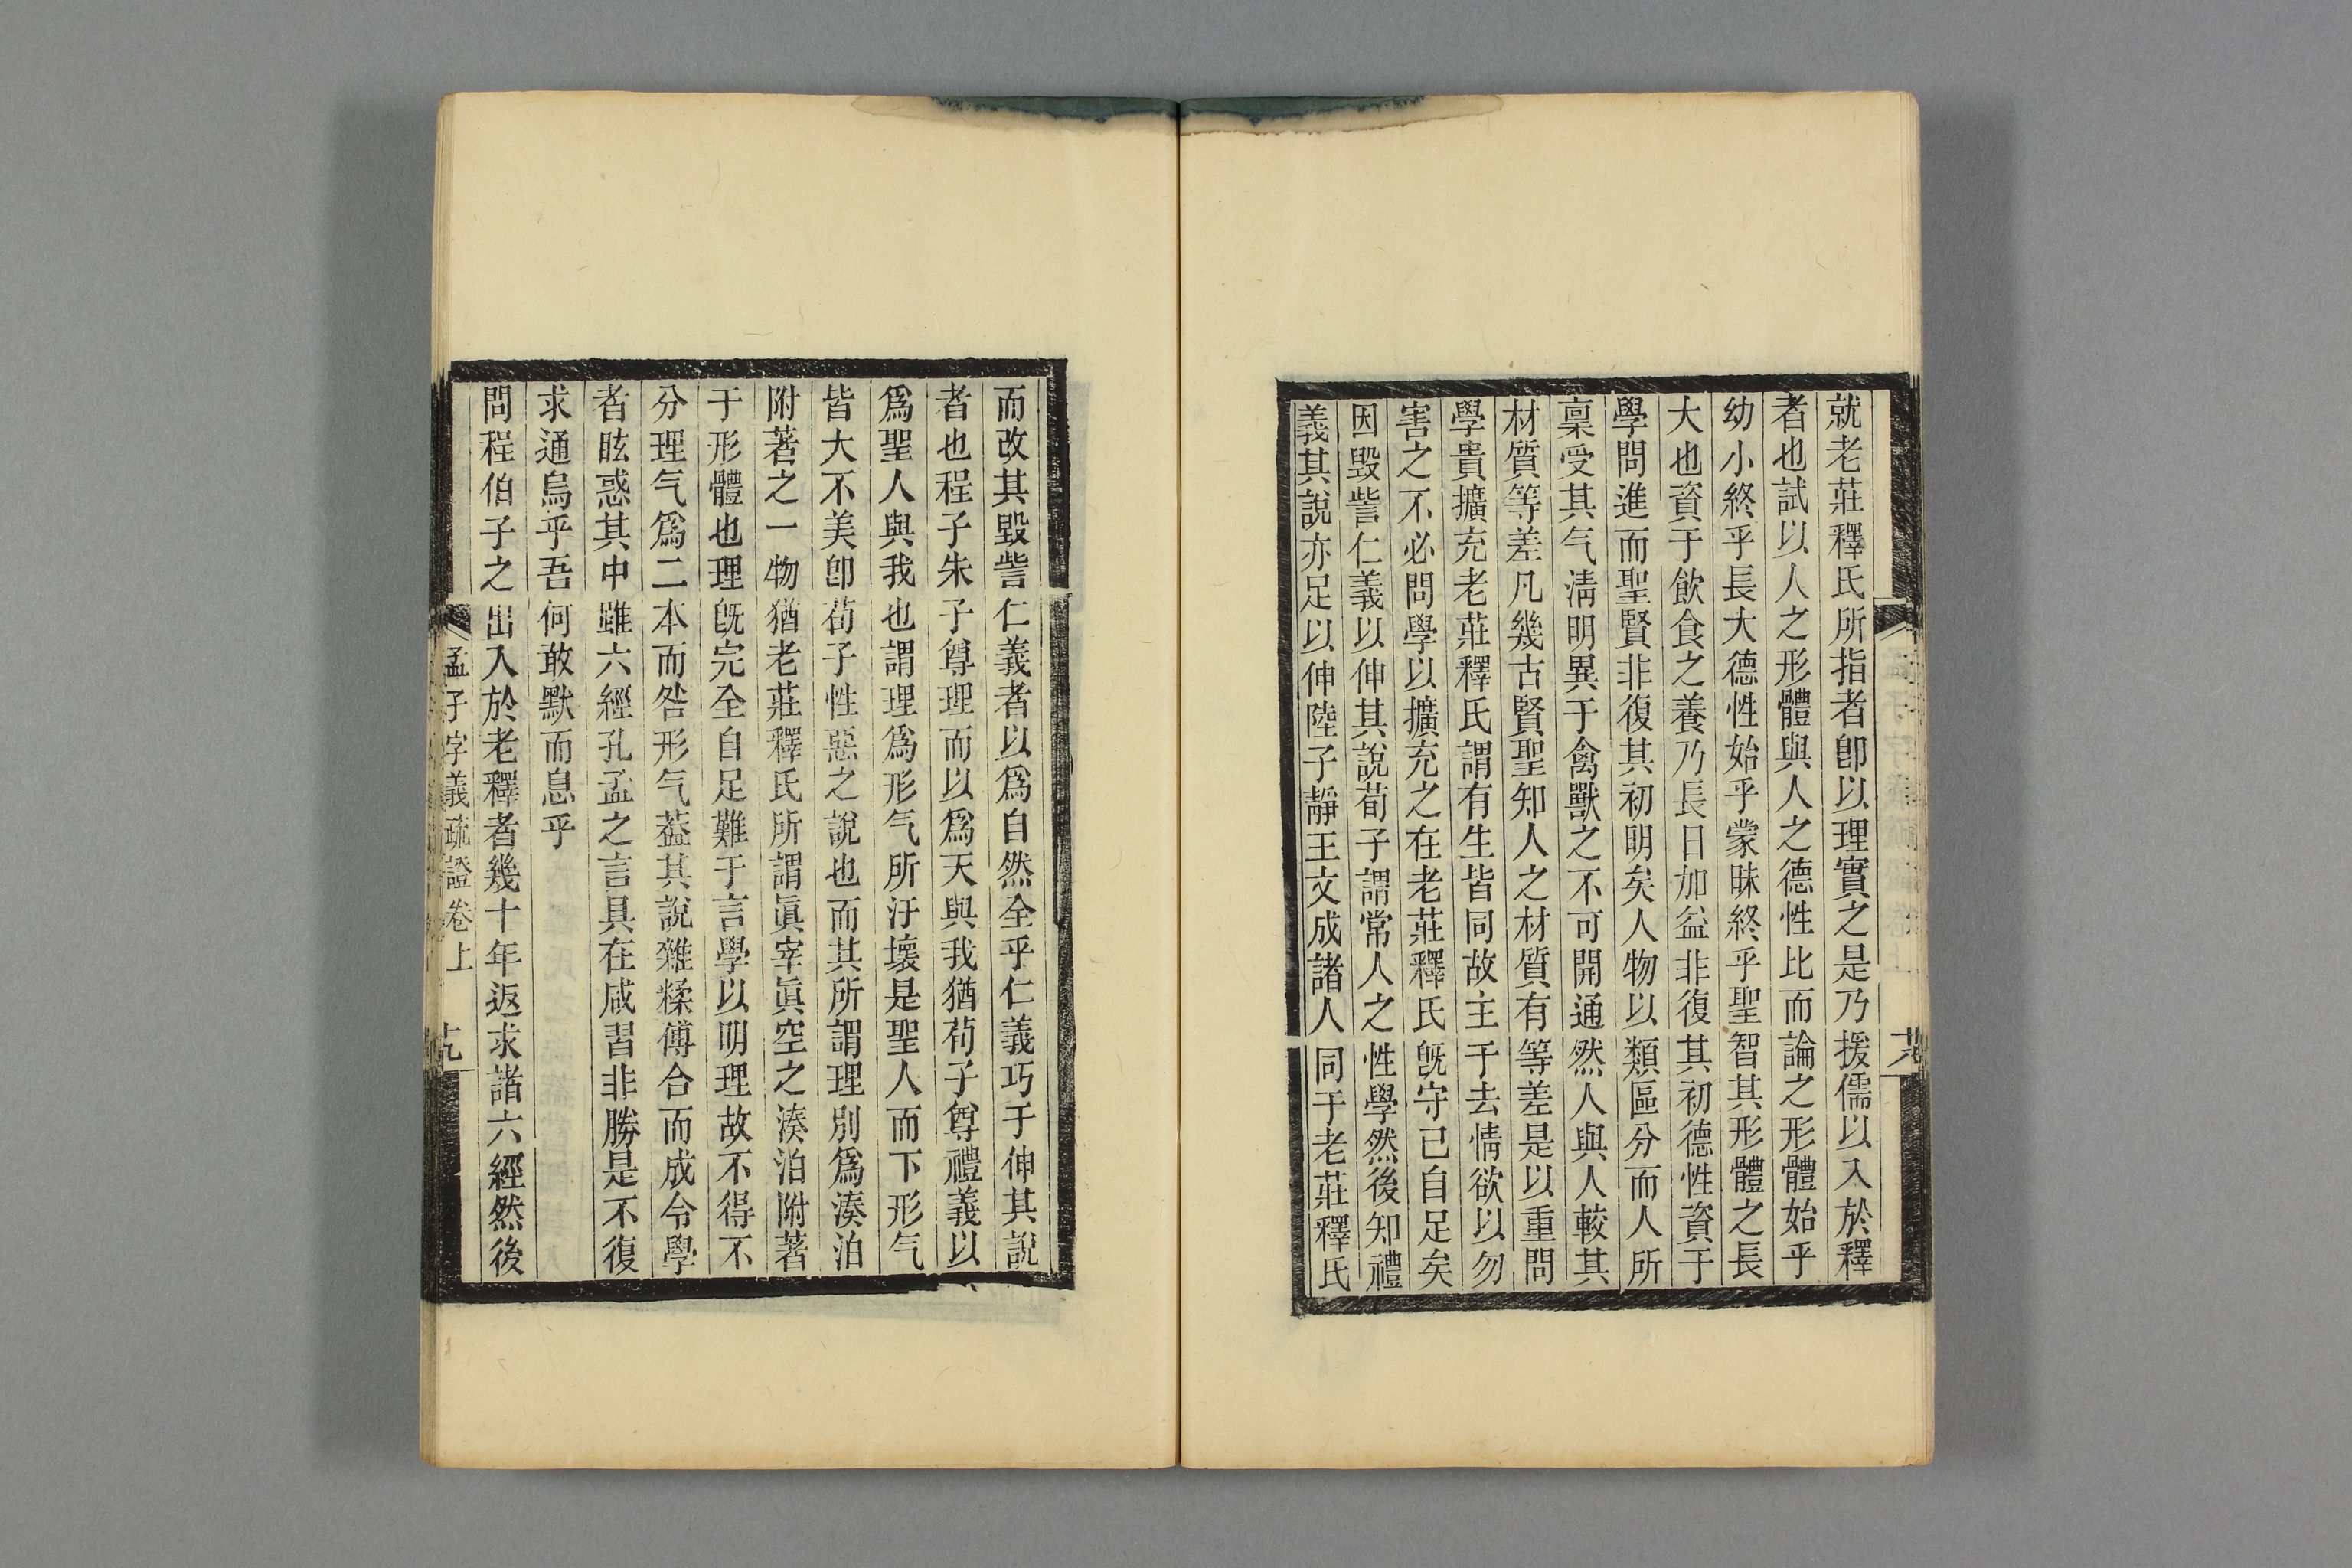 就老莊釋氏所指者卽以理實之是乃援儒以入於釋
者也試以人之形體與人之德性比而論之形體始乎
幼小終乎長大德性始乎蒙昧終乎聖智其形體之長
大也資于飲食之養乃長日加益非復其初德性資于
學問進而聖賢非復其初明矣人物以類區分而人所
稟受其气淸明異于禽獸之不可開通然人與人較其
材質等差凡幾古賢聖知人之材質有等差是以重問
學貴擴充老莊釋氏謂有生皆同故主于去情欲以勿
害之不必問學以擴充之在老莊釋氏旣守己自足矣
因毀訾仁義以伸其說荀子謂常人之性學然後知禮
義其說亦足以伸陸子靜王文成諸人同于老莊釋氏
而改其毀訾仁義者以爲自然全乎仁義巧于伸其說
者也程子朱子尊理而以爲天與我猶荀子尊禮義以
爲聖人與我也謂理爲形气所汙壞是聖人而下形气
皆大不美卽荀子性惡之說也而其所謂理別爲湊泊
附著之一物猶老莊釋氏所謂眞宰眞空之湊泊附著
于形體也理旣完全自足難于言學以明理故不得不
分理气爲二本而咎形气葢其說雜糅傅合而成令學
者眩惑其中雖六經孔孟之言具在咸習非勝是不復
求通烏乎吾何敢默而息乎
問程伯子之出入於老釋者幾十年返求諸六經然後
孟子字義疏證卷上